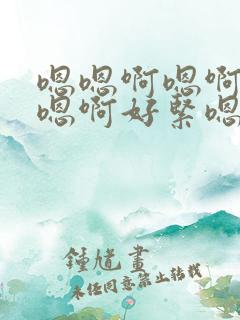 嗯嗯啊嗯啊
嗯啊好紧嗯
鍾馗畫
未经同意禁止转载